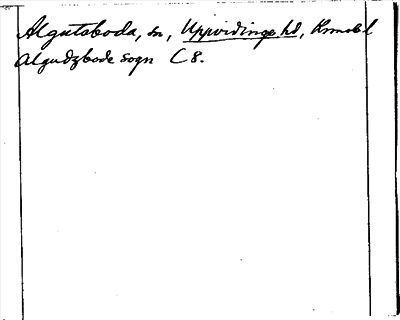 Algutsboda, sn, Uppvidinge hd, Kronobl
Algudzbode sogn C 8.